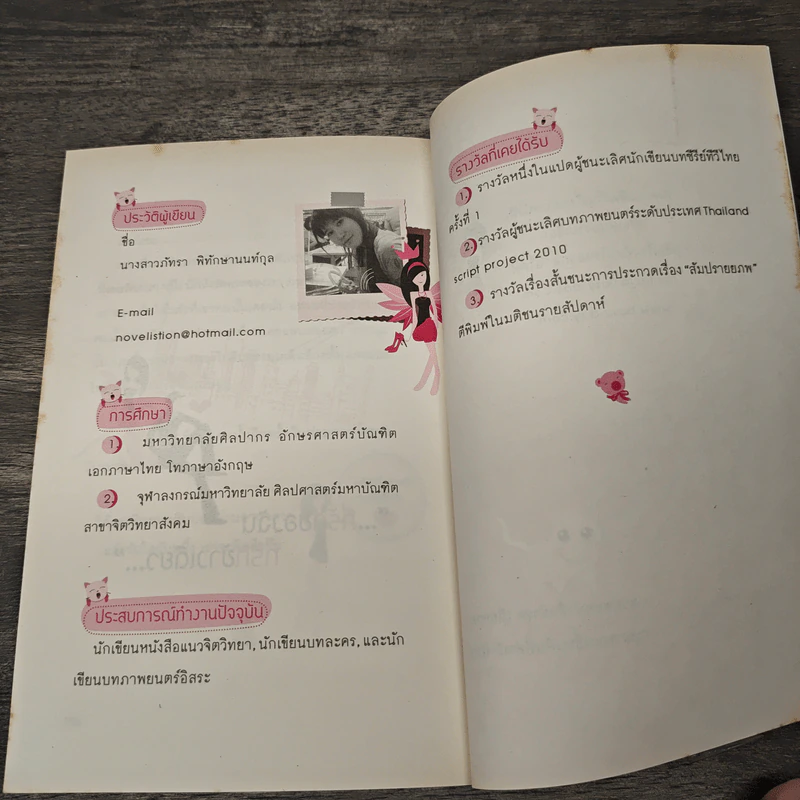 ประวัติผู้เขียน
ชื่อ
นางสาวภัทรา พิทักษานนท์กุล
E-mail
novelistion@hotmail.com
การศึกษา
1. มหาวิทยาลัยศิลปากร อักษรศาสตร์บัณฑิต
เอกภาษาไทย โทภาษาอังกฤษ
2. จุฬาลงกรณ์มหาวิทยาลัย ศิลปศาสตร์มหาบัณฑิต
สาขาจิตวิทยาสังคม
ประสบการณ์ทำงานปัจจุบัน
นักเขียนหนังสือแนวจิตวิทยา, นักเขียนบทละคร, และนัก
เขียนบทภาพยนตร์อิสระ
รางวัลที่เคยได้รับ
1. รางวัลหนึ่งในแปดผู้ชนะเลิศนักเขียนบทซีรีย์ทีวีไทย
ครั้งที่ 1
2. รางวัลผู้ชนะเลิศบทภาพยนตร์ระดับประเทศ Thailand
script project 2010
3. รางวัลเรื่องสั้นชนะการประกวดเรื่อง “สัมปรายยภพ”
ตีพิมพ์ในมติชนรายสัปดาห์